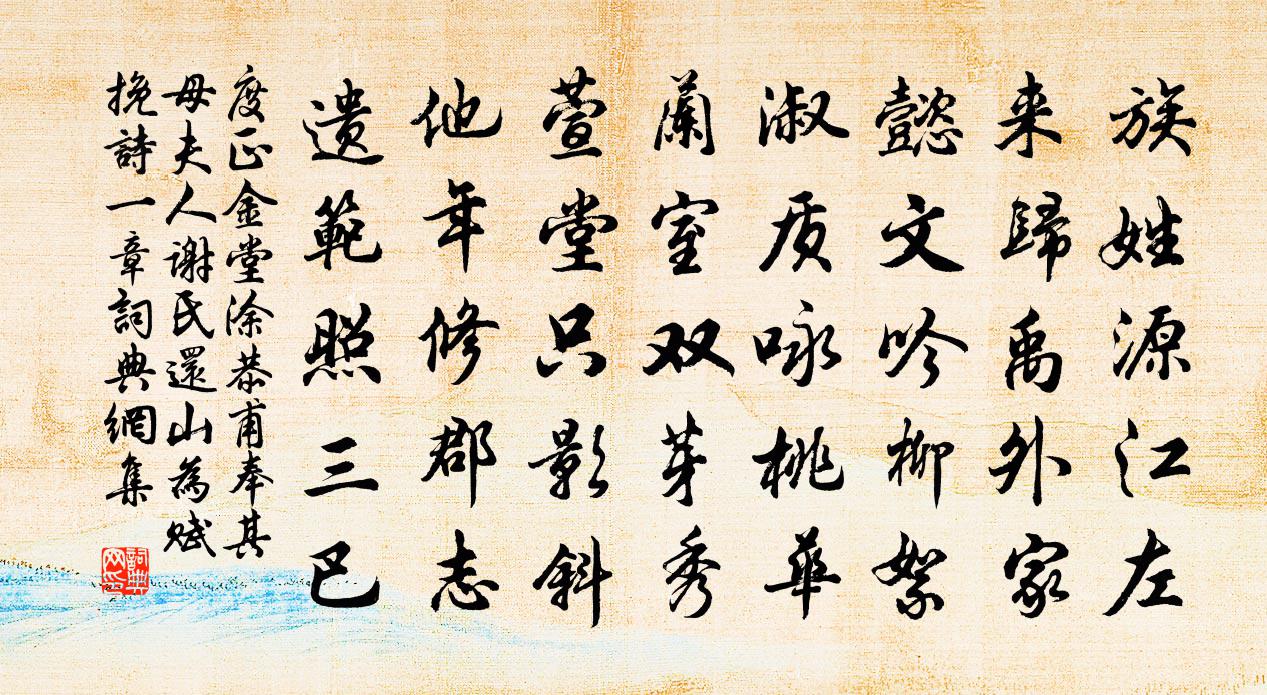 族姓源江左
来歸禹外家
懿文吟柳絮
淑质咏桃華
蘭室双芽秀
萱堂只影斜
他年修郡志
遗範照三巴
度正金堂涂恭甫奉其
母夫人谢氏還山為赋
挽詩一章詞典網集